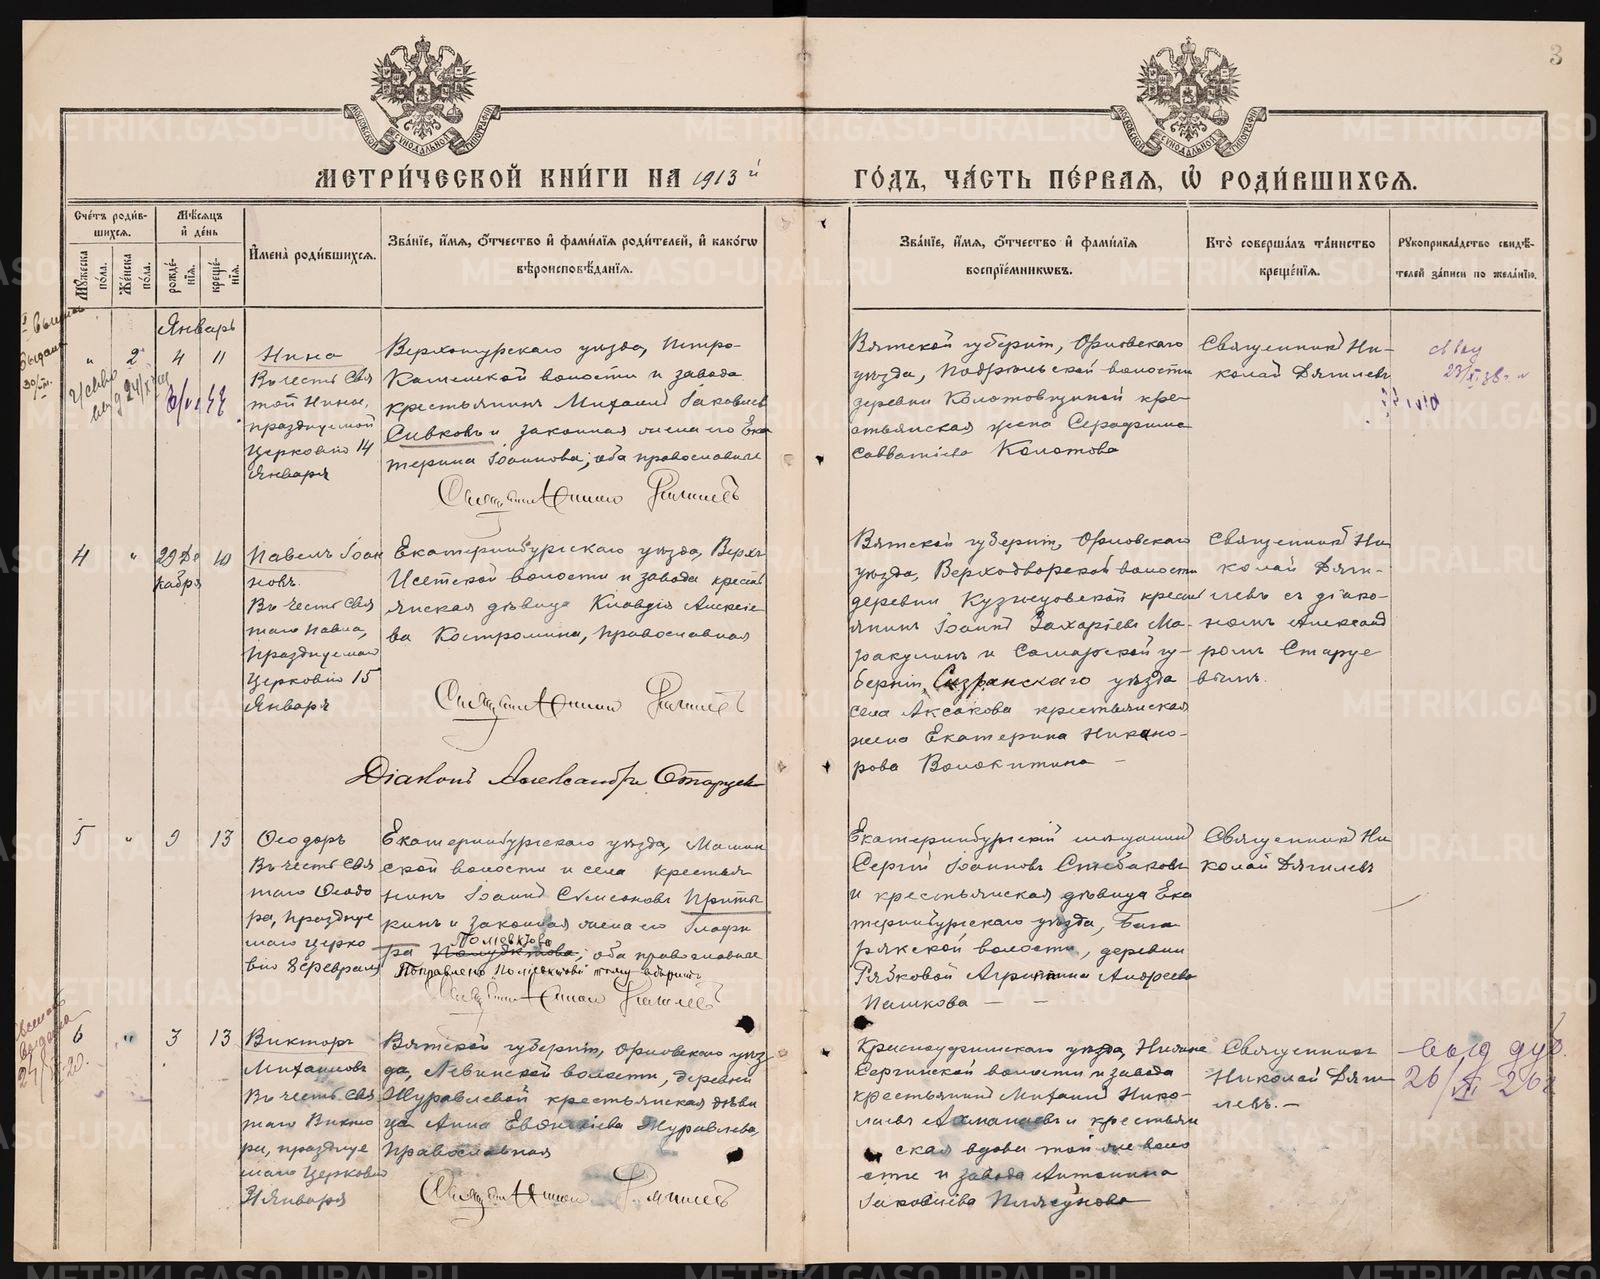 3
МЕТРИ́ЧЕСКОЙ КНИ́ГИ НА 1913 й
ГО́ДЪ, ЧА́СТЬ ПЕ́РВАЯ, Ѡ РОДИ́ВШИХСЯ.
Сче́тъ роди́в-
шихся.
Мѣсяцъ
и де́нь
Мꙋжеска
по́ла.
Же́нска
по́ла.
рожде́-
нїя.
креще́-
нїя.
Имена̀ роди́вшихся.
Зва́нїе, и́мя, о́тчество и фами́лїя роди́телей, и како́гѡ
вѣроисповѣ́данїя.
Зва́нїе, и́мя, о́тчество и фами́лїя
воспрїе́мникѡвъ.
Кто̀ соверша́лъ та́инство
креще́нїя.
Рꙋкоприкла́дство свидѣ́-
телей за́писи по жела́нїю.
Январь
" 2 4 11
Нина
Въ честь Свя
той Нины,
празднуемой
Церковію 14
Января
Верхотурскаго уѣзда, Петро-
Каменской волости и завода
крестьянинъ Михаилъ Іаковлевъ
Сивковъ и законная жена его Ека
терина Іоаннова; оба православные
Священникъ Николай Дягилевъ
Вятской губерніи, Орловскаго
уѣзда, Подрѣльской волости
деревни Колотовщиной кре-
стьянская жена Серафима
Савватіева Колотова
Священникъ Ни-
колай Дягилевъ
4 " 29 Де 10
кабря
Павелъ Іоан
новъ.
Въ честь Свя
таго Павла,
Празднуемаго
Церковію 15
Января
Екатеринбургскаго уѣзда, Верхъ
Исетской волости и завода кресть
янская дѣвица Клавдія Алексіе
ва Костромина, православная
Священникъ Николай Дягилевъ
Діаконъ Александръ Старцевъ
Вятской губерніи, Орловскаго
уѣзда, Верходворской волости
деревни Кузнецовской кресть
янинъ Іоаннъ Захаріевъ Ма-
ракулинъ и Самарской гу-
берніи, Сызранскаго уѣзда
села Аксакова крестьянская
жена Екатерина Никано-
рова Волокитина –
Священникъ Ни
колай Дяги-
левъ съ діако-
номъ Александ
ромъ Старце
вымъ.
5 " 9 13
Ѳеодоръ
Въ честь Свя
таго Ѳеодо
ра, праздную
маго Церко
вію 8 февраля
Екатеринбургскаго уѣзда, Мамин
ской волости и села крестья
нинъ Іоаннъ Сѵмеоновъ Приты
кинъ и законная жена его Глафи
ра Поліевктова; оба православные
Поправлено Поліевктова тому вѣрить
Священникъ Николай Дягилевъ
Екатеринбургскій мѣщанинъ
Сергій Іоанновъ Стебаковъ
и крестьянская дѣвица Ека
теринбургскаго уѣзда, Бага
рякской волости, деревни
Агрипина Андреева
Пашкова – –
Священникъ Ни
колай Дягилевъ
6 " 3 13
Викторъ
Михаиловъ
Въ честь Свя
таго Викто
ра, праздную
маго Церковію
31 Января
Вятской губерніи, Орловскаго уѣз
да, Левинской волости, деревни
Журавлевой крестьянская дѣви
ца Анна Евѳиміева Журавлева,
Православная
Священникъ Николай Дягилевъ
Красноуфимскаго уѣзда, Нижне
Сергинской волости и завода
крестьянинъ Михаилъ Нико-
лаевъ Ахманаевъ и крестьян
ская вдова той же воло
сти и завода Антонина
Іаковлева Плясунова
Священникъ
Николай Дяги
левъ. –
выд дуб.
26/VII 26г